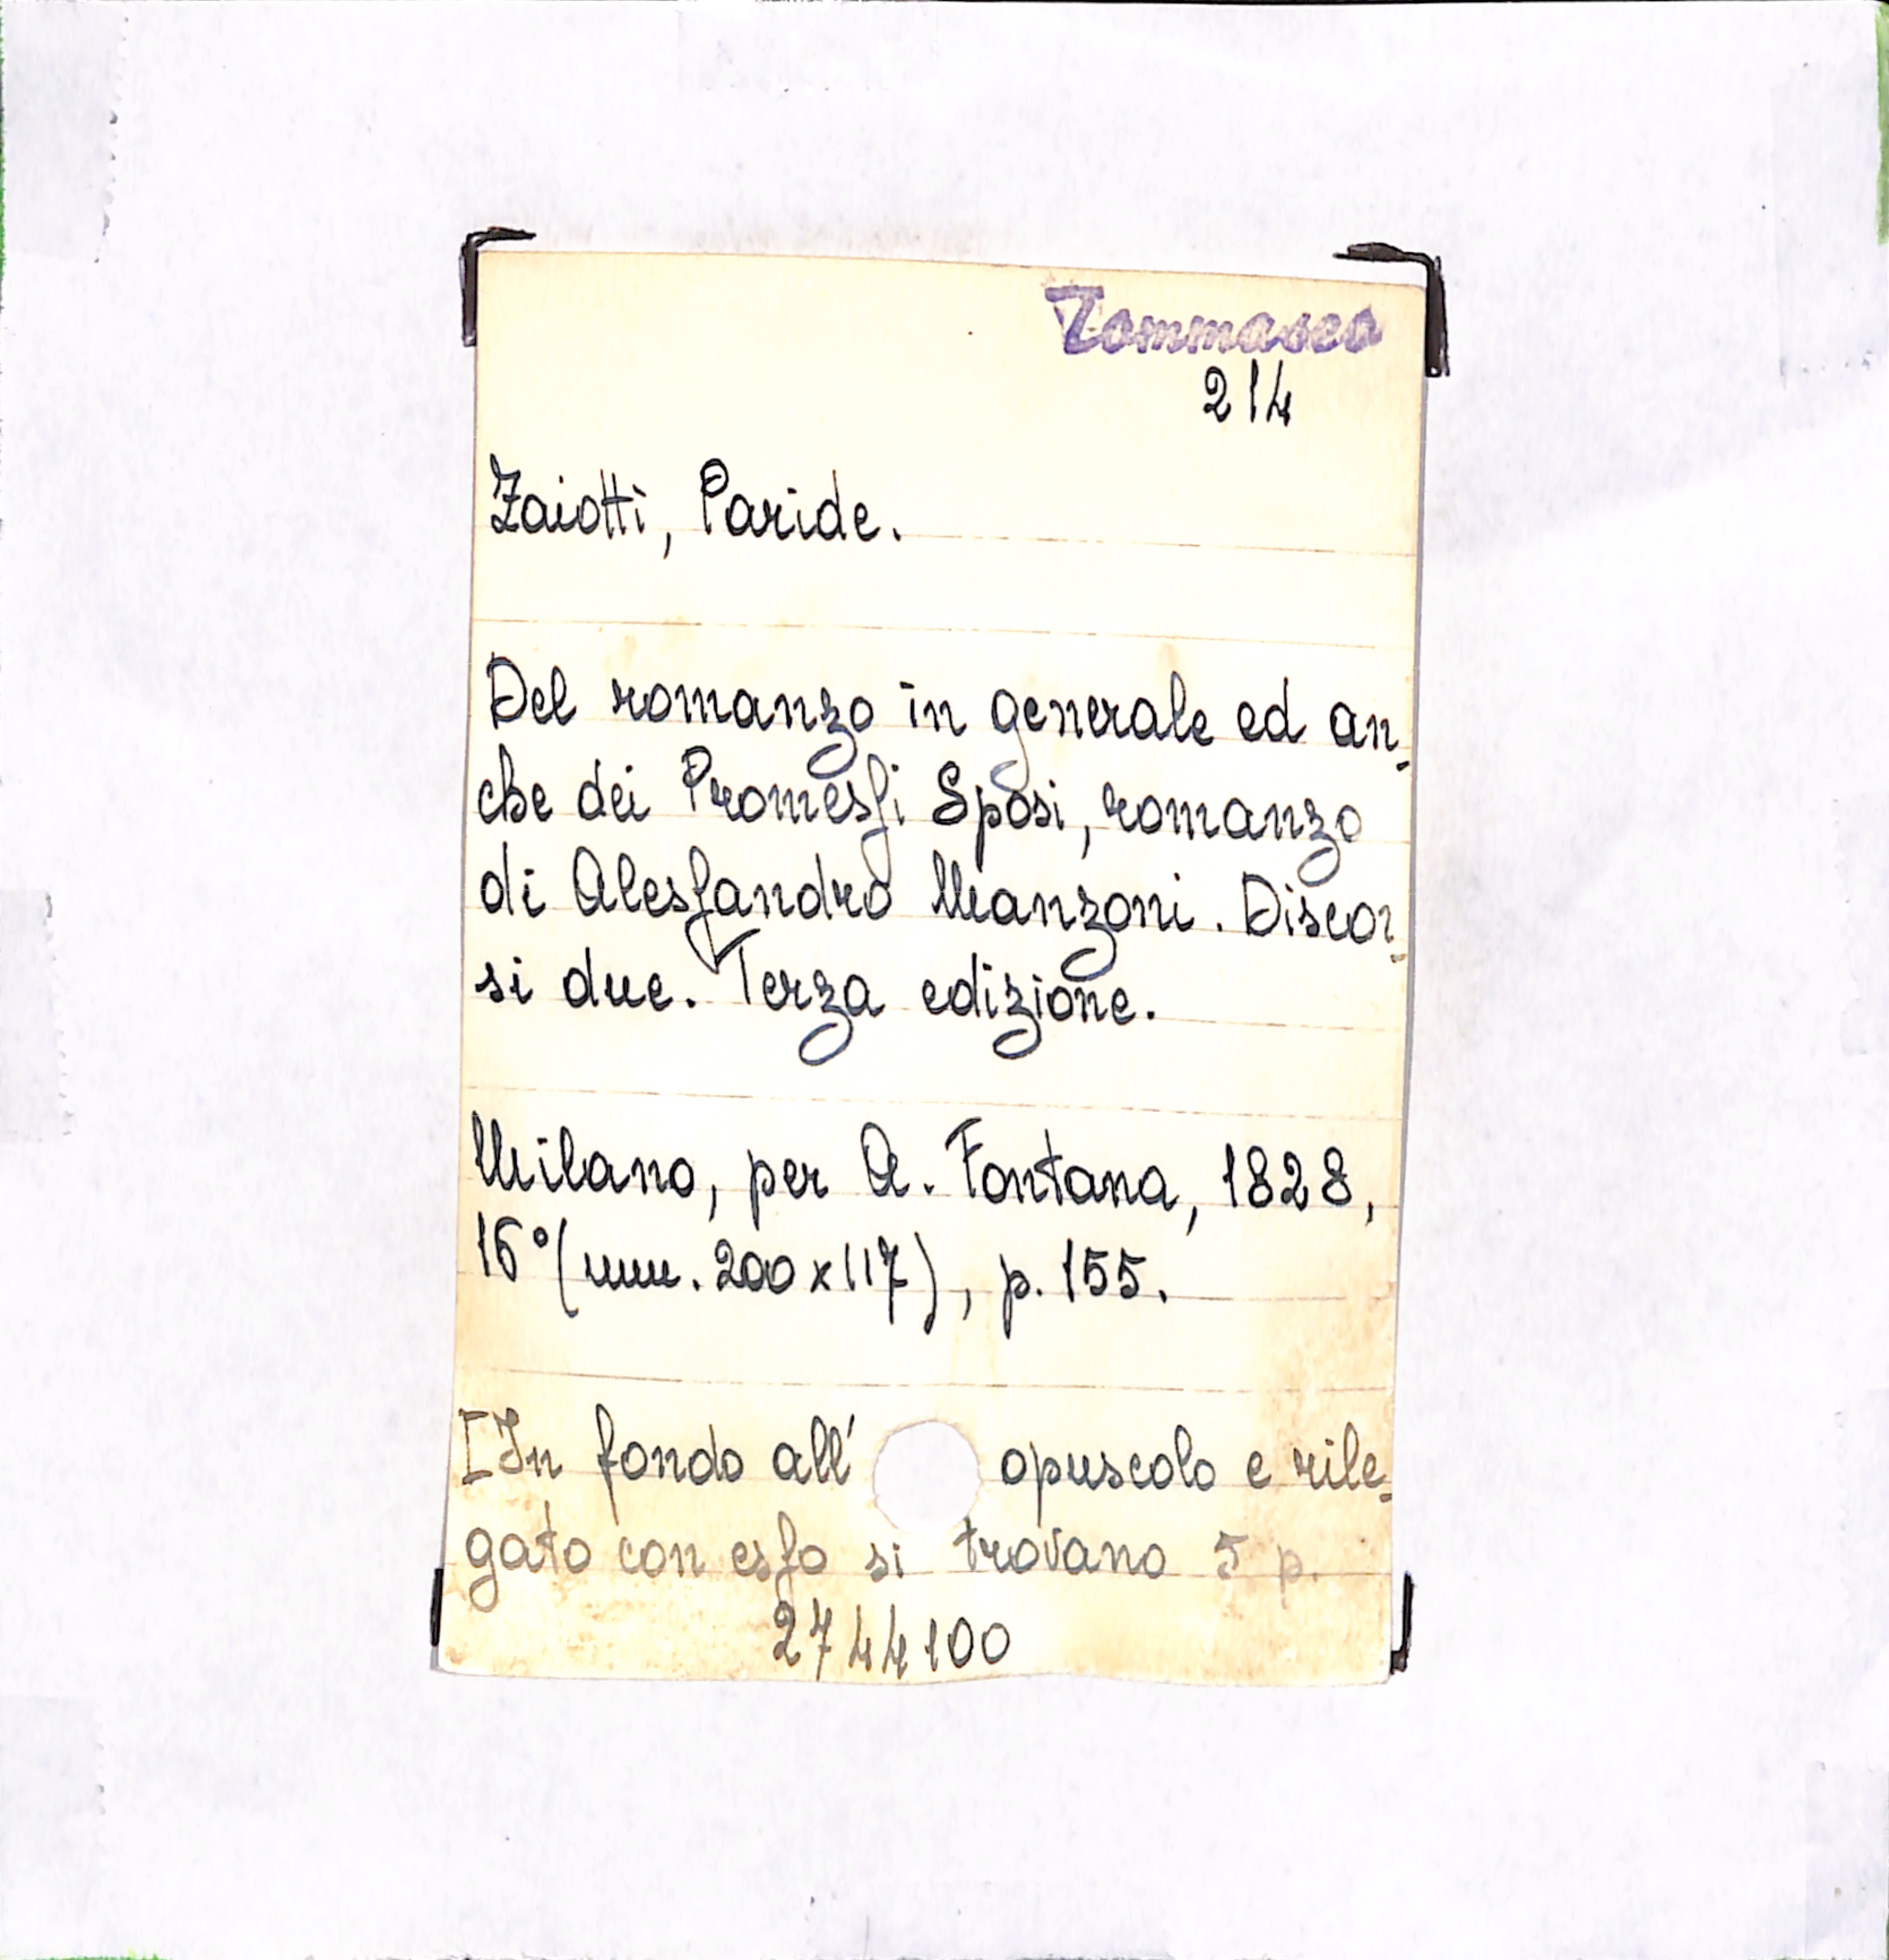 Tommaseo
214
Zaiotti, Paride.
Del romanzo in generale ed an-
che dei Promessi Sposi, romanzo
di Alessandro Manzoni. Discor-
si due. Terza edizione.
Milano, per A. Fontana, 1828,
16° (mm. 200x117), p. 155.
[In fondo all' opuscolo e rile-
gato con esso si trovano 5 p.
2744100